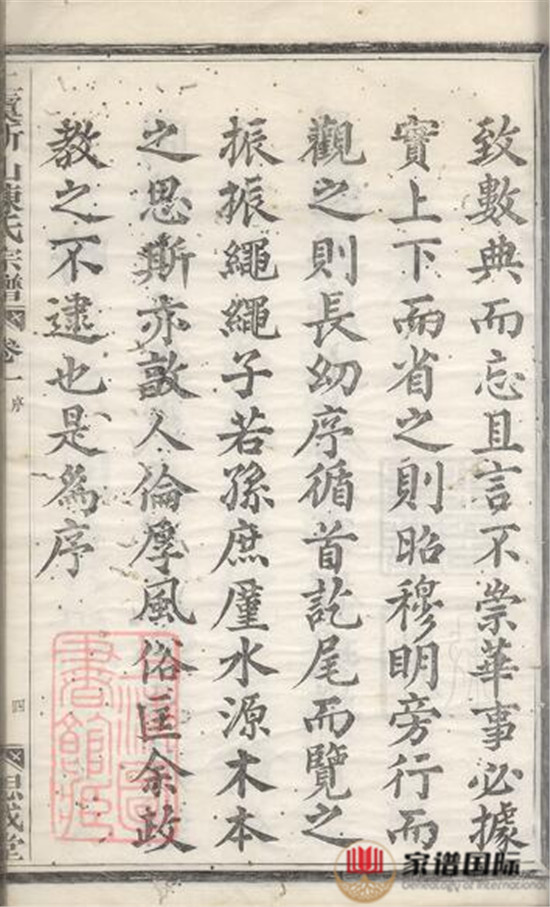 致數典而忘且言不崇華事必據
實上下而省之則昭穆明旁行而
觀之則長幼序循首訖尾而覽之
振振繩繩子若孫庶厪水源木本
之思斯亦敦人倫厚風俗匡余政
教之不逮也是為序
山陳氏宗譜 卷一 序
四
思成堂
書館
家谱国际
Genealogy of International